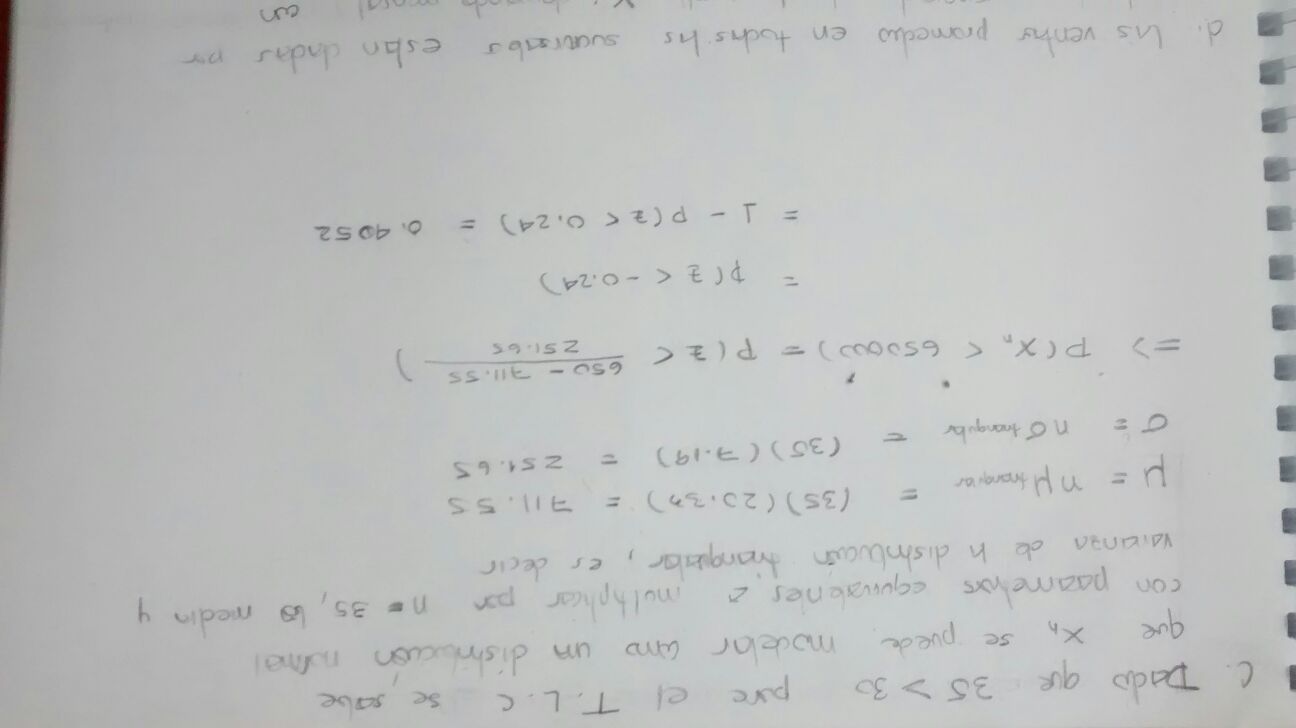 C. Dado que 35 > 30 por el T.L.C se sabe
que Xn se puede modelar como un distribución normal
con parametros equivalentes a multiplicar por n = 35, la media y
varianza de la distribución triangular, es decir
μ = nμ triangular = (35)(20.33) = 711.55
σ = nσ triangular = (35)(7.19) = 251.65
=> P(Xn < 650000) = P(z < 650 - 711.55 / 251.65)
= P(z < -0.24)
= 1 - P(z < 0.24) = 0.4052
d. Las ventas promedio en todas las sucursales estan dadas por